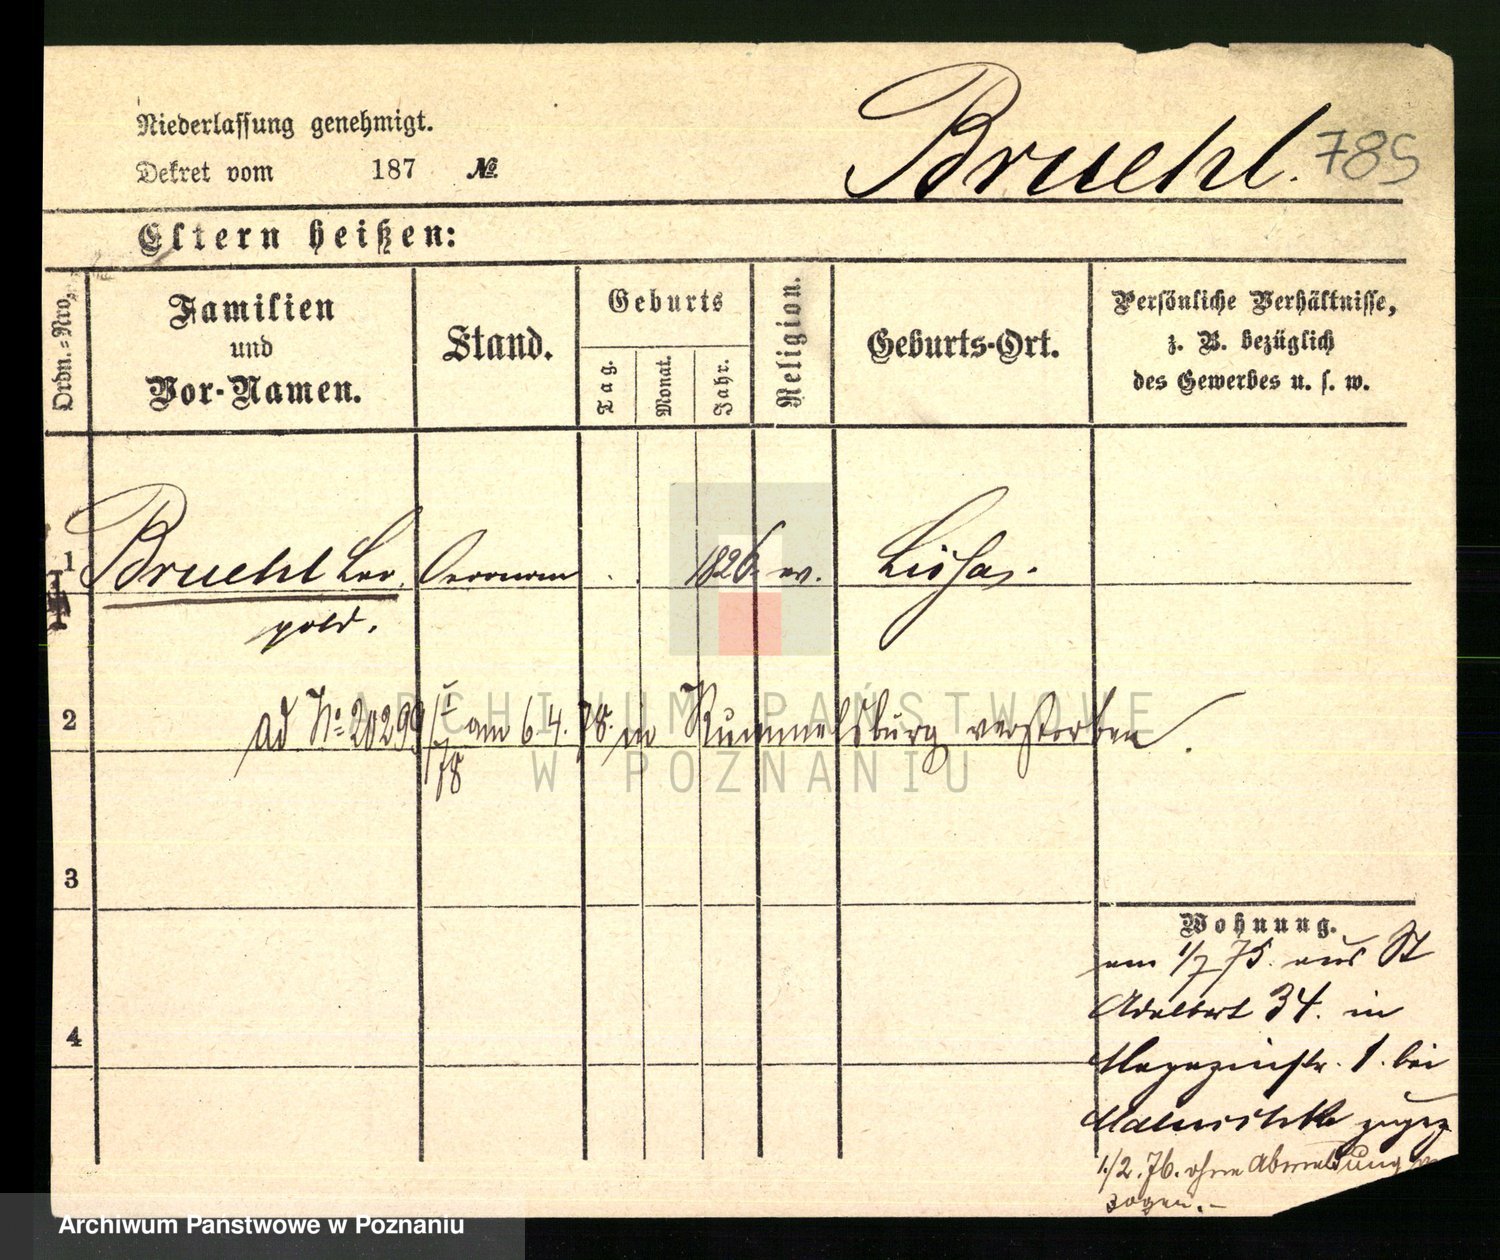 Niederlassung genehmigt.
Dekret vom 187 №
Bruehl. 785
Eltern heißen:
Ordn.=Nro.
Familien
und
Vor-Namen.
Stand.
Geburts
Tag.
Monat.
Jahr.
Religion.
Geburts-Ort.
Persönliche Verhältnisse,
z. B. bezüglich
des Gewerbes u. s. w.
1 Bruehl Leo 1826. ev.
pold.
2 ad No 20299 I/78 am 6.4.78. in Rummelsburg verstorben.
3
4
Wohnung.
am 1/7 75. aus St
Adalbert 34. in
Magazinstr. 1. bei
1/2.76. ohne Abmeldung
zogen.-
ARCHIWUM PAŃSTWOWE
W POZNANIU
Archiwum Państwowe w Poznaniu